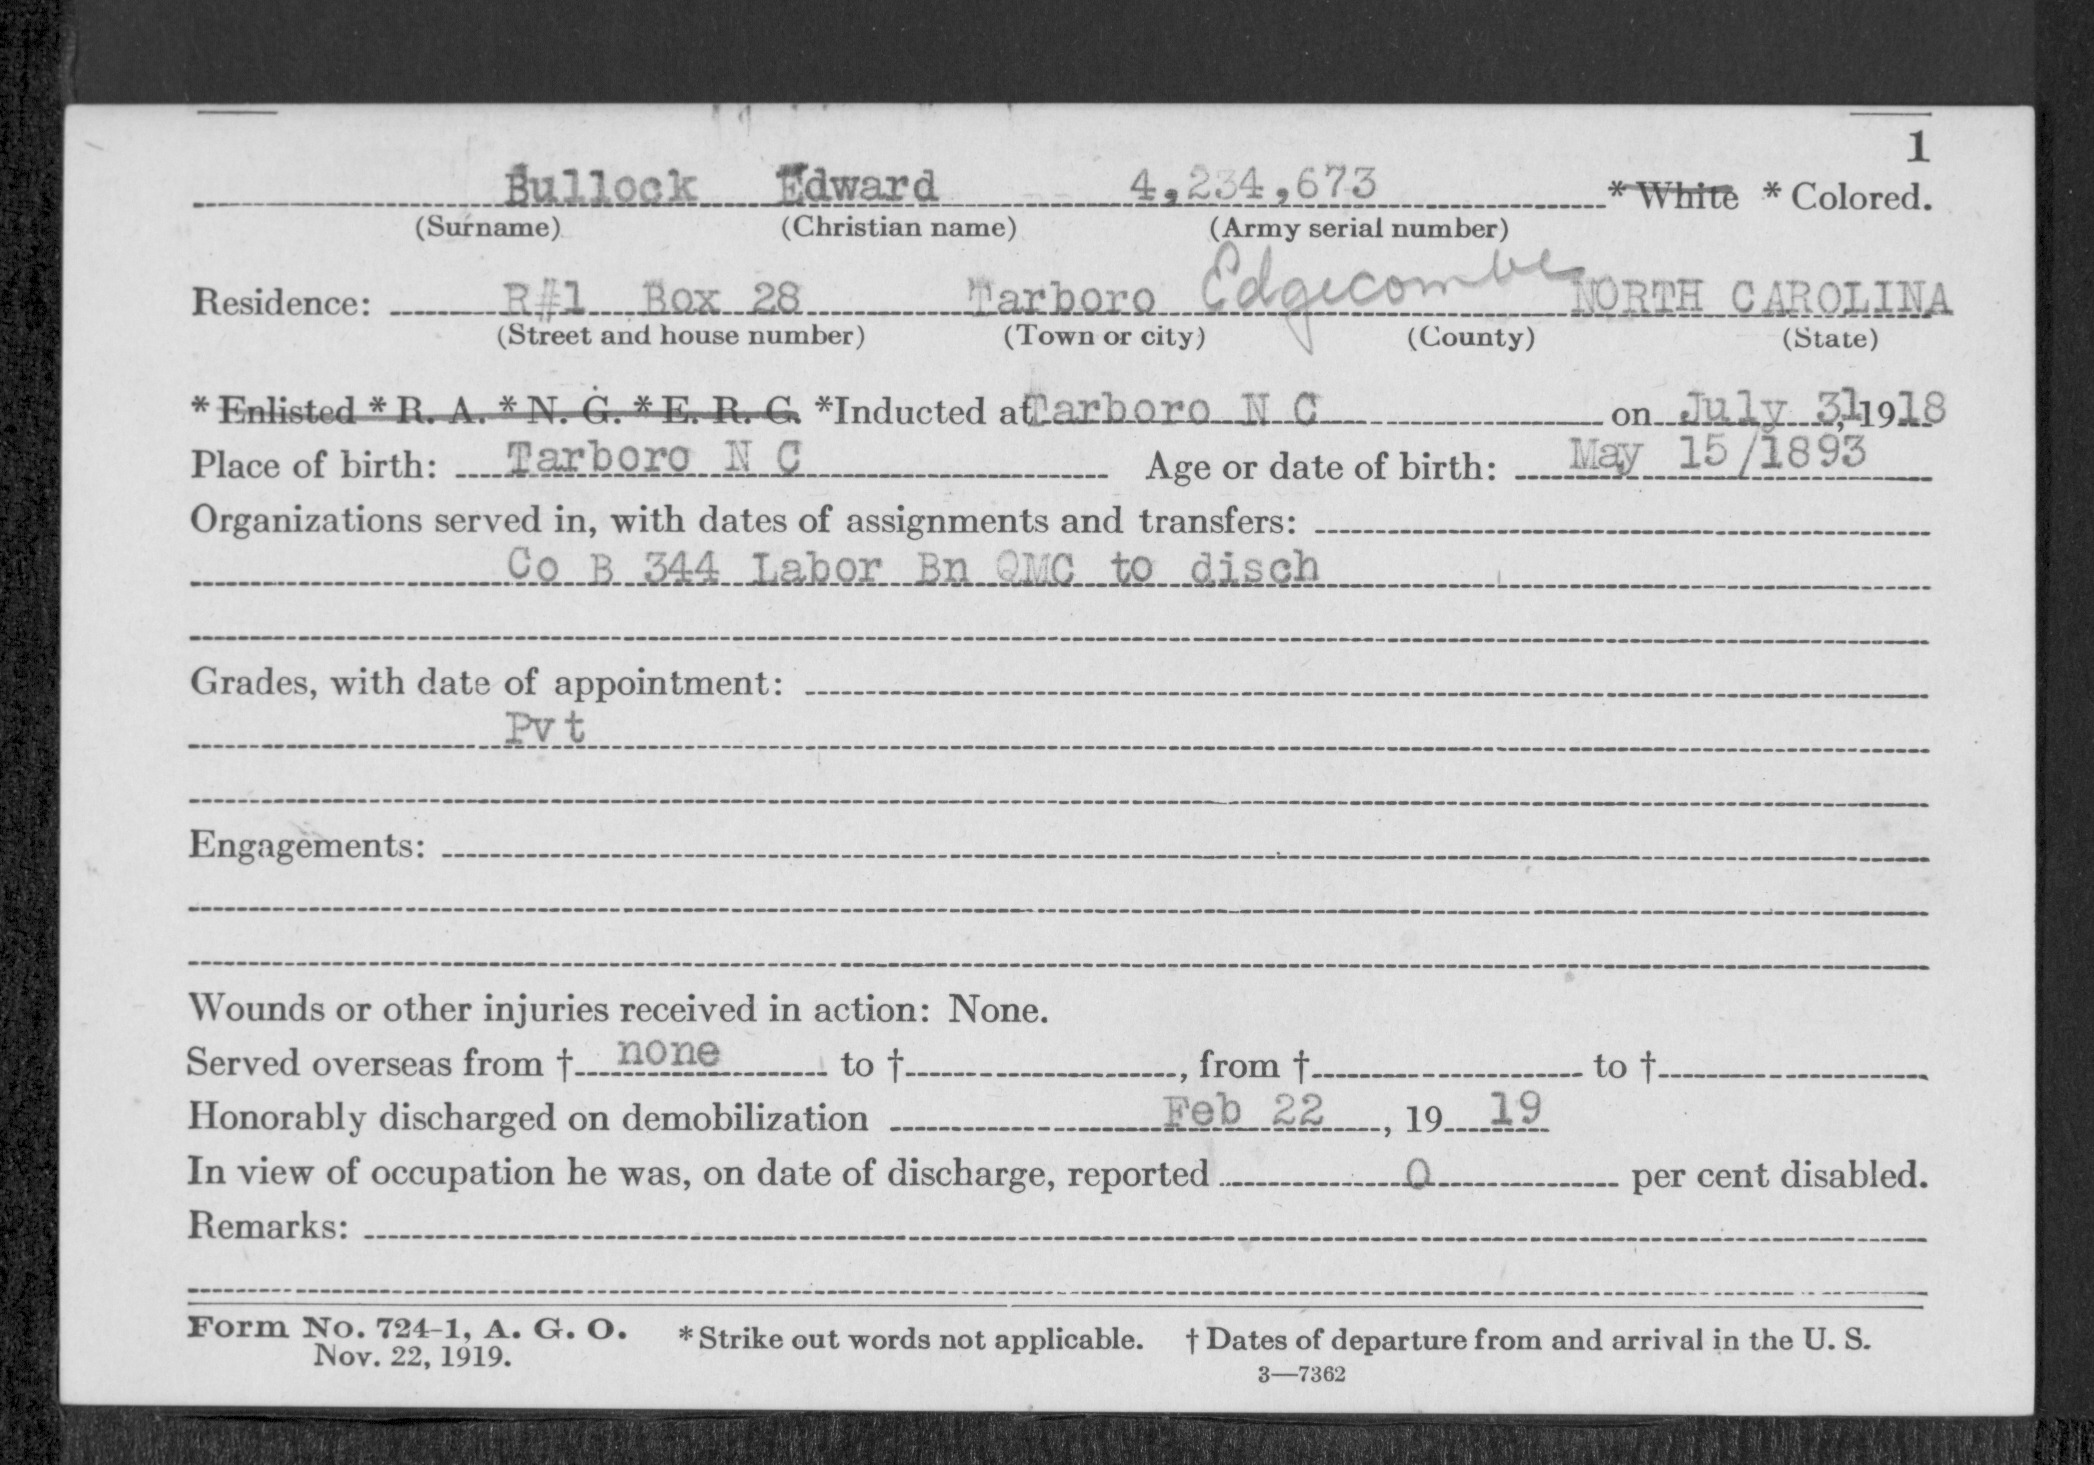 1
Bullock Edward 4,234,673 * White * Colored.
(Surname) (Christian name) (Army serial number)
Residence: R#1 Box 28 Tarboro Edgecombe NORTH CAROLINA
(Street and house number) (Town or city) (County) (State)
* Enlisted * R. A. * N. G. * E. R. C. *Inducted at Tarboro N C on July 31, 1918
Place of birth: Tarboro N C Age or date of birth: May 15/1893
Organizations served in, with dates of assignments and transfers:
Co B 344 Labor Bn QMC to disch
Grades, with date of appointment:
Pvt
Engagements:
Wounds or other injuries received in action: None.
Served overseas from † none to †, from † to †
Honorably discharged on demobilization Feb 22, 19 19
In view of occupation he was, on date of discharge, reported 0 per cent disabled.
Remarks:
Form No. 724-1, A. G. O. * Strike out words not applicable. † Dates of departure from and arrival in the U. S.
Nov. 22, 1919.
3—7362